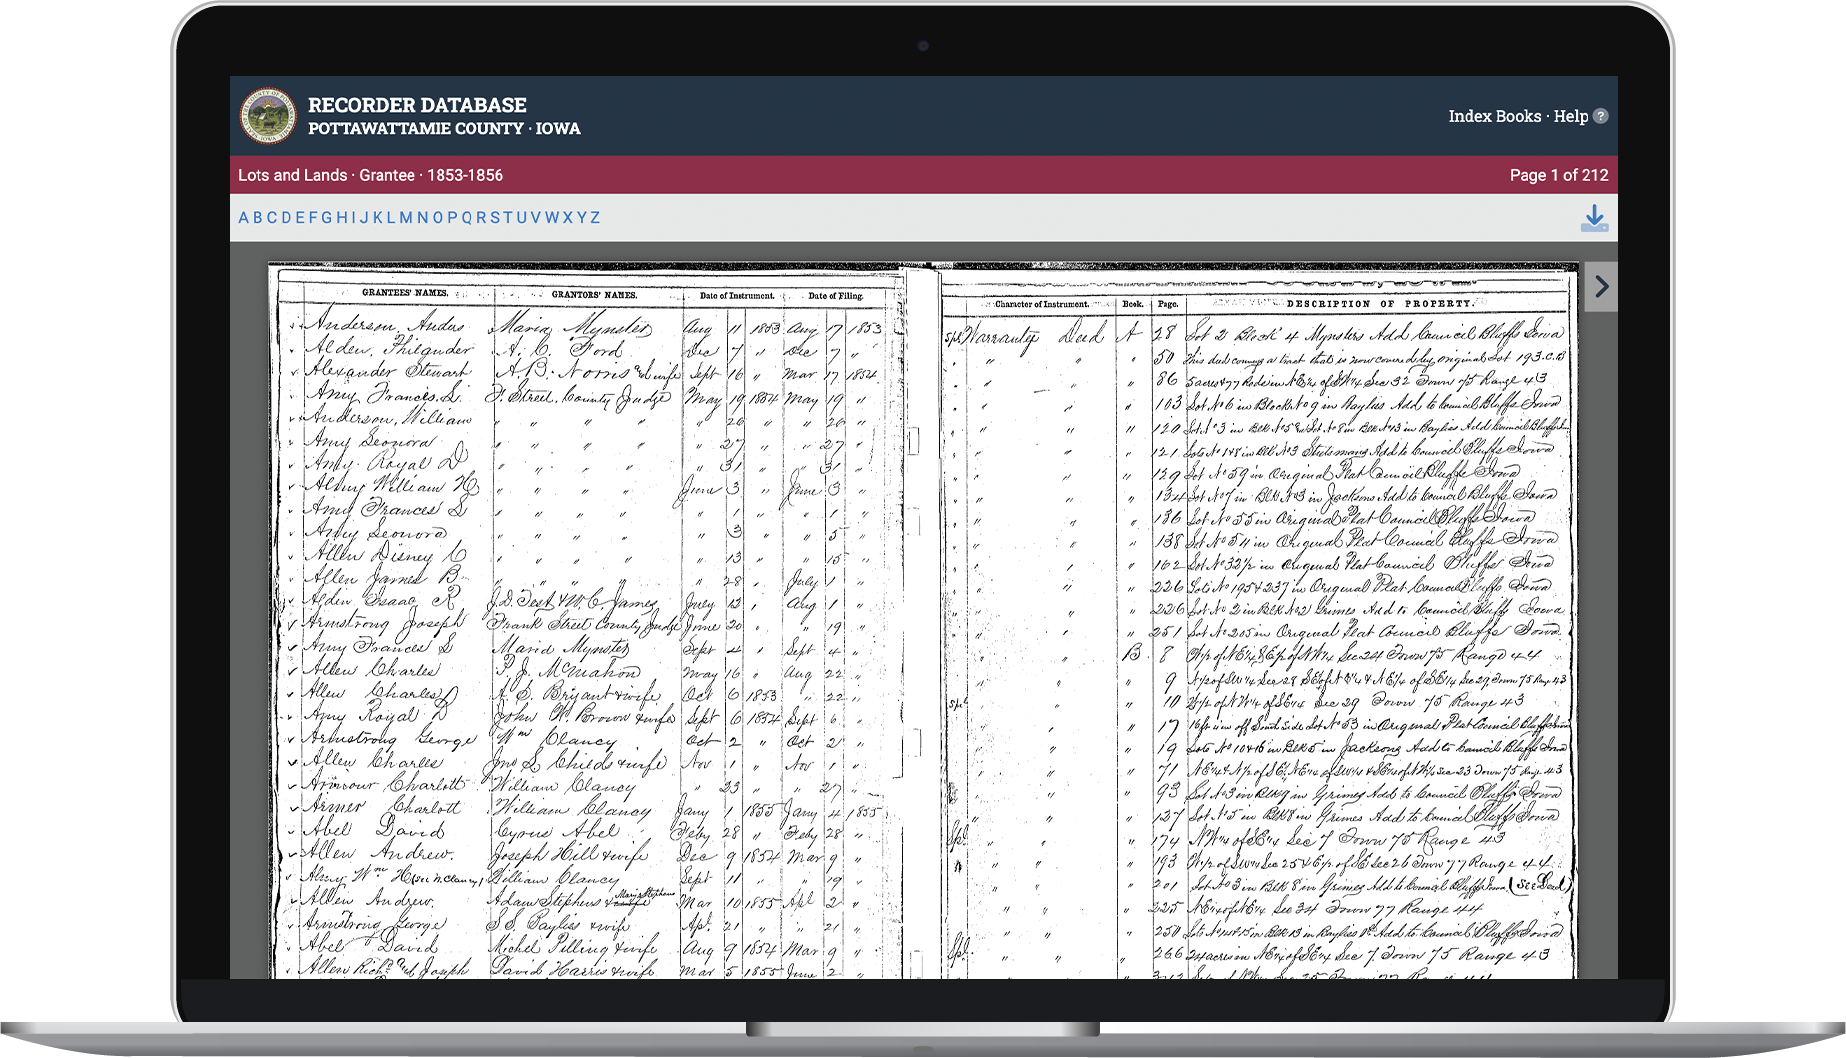 RECORDER DATABASE
POTTAWATTAMIE COUNTY · IOWA
Index Books · Help ?
Lots and Lands · Grantee · 1853-1856
Page 1 of 212
A B C D E F G H I J K L M N O P Q R S T U V W X Y Z
GRANTEES' NAMES. GRANTORS' NAMES. Date of Instrument. Date of Filing. Character of Instrument. Book. Page. DESCRIPTION OF PROPERTY.
Anderson, Andus Maria Mynster Aug 11 1853 Aug 17 1853 Warranty Deed A 28 Lot 2 Block 4 Mynsters Add Council Bluffs Iowa
Alden, Philander A. C. Ford Dec 7 " Dec 7 " " " " 50 This deed a tract that is now covered by original Lot 193 C.B
Alexander Stewart A. B. Norris and wife Sept 16 " Mar 17 1854 " " " 86 5 acres & 77 Rods in NE¼ of SW¼ Sec 32 Town 75 Range 43
Amy Francis S. F. Street, County Judge May 19 1854 May 19 " " " " 103 Lot No 6 in Block No 9 in Bayliss Add to Council Bluffs Iowa
Anderson, William " " " " " 26 " " 26 " " " " 120 Lot No 3 in Blk No 5 & Lot No 8 in Blk No 13 in Bayliss Add Council Bluffs
Amy Leonora " " " " " 27 " " 27 " " " " 121 Lots No in Blk No 3 Add to Council Bluffs Iowa
Amy Royal D " " " " " 31 " " 31 " " " " 129 Lot No 59 in Original Plat Council Bluffs Iowa
William H " " " " June 3 " June 3 " " " " 134 Lot No 7 in Blk No 3 in Jacksons Add to Council Bluffs Iowa
Amy Frances S " " " " " 1 " " 1 " " " " 136 Lot No 55 in Original Plat Council Bluffs Iowa
Amy Leonora " " " " " 3 " " 5 " " " " 138 Lot No 54 in Original Plat Council Bluffs Iowa
Allen Disney C " " " " " 13 " " 15 " " " " 162 Lot No 32½ in Original Plat Council Bluffs Iowa
Allen James B. " " " " " 28 " July 1 " " " " 226 Lots No 195 & 237 in Original Plat Council Bluffs Iowa
Isaac R J. D. Test & W. C. James July 12 " Aug 1 " " " " 226 Lot No 2 in Blk No 2 Grimes Add to Council Bluffs Iowa
Armstrong Joseph Frank Street County Judge June 20 " " 19 " " " " 251 Lot No 205 in Original Plat Council Bluffs Iowa
Amy Frances S Maria Mynster Sept 4 " Sept 4 " " B 8 Sec 24 Town 75 Range 44
Allen Charles P. J. McMahon May 16 " Aug 22 " " " 9 Sec 29 Town 75 Rang 43
Allen Charles D A. S. Bryant & wife Oct 6 1853 " 22 " Spl " " 10 Sec 29 Town 75 Range 43
Amy Royal D John W. Brown & wife Sept 6 1854 Sept 6 " " " " 17 off South Side Lot No 53 in Original Plat Council Bluffs Iowa
Armstrong George Wm Clancy Oct 2 " Oct 2 " " " " 19 Lots No 10 & 16 in Blk 5 in Jacksons Add to Council Bluffs Iowa
Allen Charles Jno S. Childs & wife Nov 1 " Nov 1 " " " 71 Sec 23 Town 75 Range 43
Armour Charlott William Clancy " 23 " " 27 " " " 93 Lot No 3 in Blk 9 in Grimes Add to Council Bluffs Iowa
Armer Charlott William Clancy Jany 1 1855 Jany 4 1855 " " 127 Lot No 5 in Blk 8 in Grimes Add to Council Bluffs Iowa
Abel David Cyrus Abel Feby 28 " Feby 28 " Spl. " " " 174 NW¼ of SE¼ Sec 7 Town 75 Range 43
Allen Andrew. Joseph Hill & wife Dec 9 1854 Mar 9 " " " " 193 W½ of SW¼ Sec 25 & E½ of SE Sec 26 Town 77 Range 44
Wm H (See W. Clancy) William Clancy Sept 11 " " 19 " " " " 201 Lot No 3 in Blk 8 in Grimes Add to Council Bluffs Iowa (See Deed)
Allen Andrew. Adam Stephens & wife Maria Stephens Mar 10 1855 Apl 2 " " " " 225 NE¼ of NE¼ Sec 34 Town 77 Range 44
Armstrong George S. S. Bayliss & wife Apl. 21 " " 21 " " " " 250 in Blk 13 in Bayliss Add to Council Bluffs Iowa
Abel David Michel Pilling & wife Aug 9 1854 Mar 9 " Spl. " " " 266 24 acres in NE¼ of SE¼ Sec 7. Town 75 Range 43
Allen Richd and Joseph David Harris & wife Mar 5 1855 June 2 "